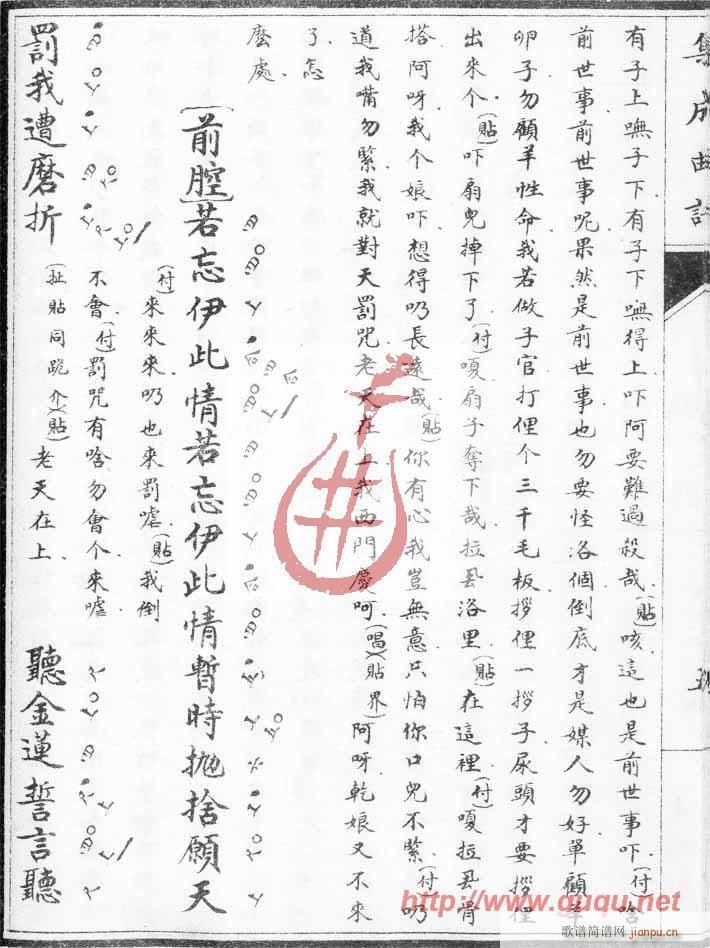 集成曲譜
有子上嘸子下有子下嘸得上吓阿要難過殺哉(貼)咳這也是前世事吓(付)啥
前世事前世事呢果然是前世事也勿要怪洛個倒底才是媒人勿好單顧羊
卵子勿顧羊性命我若做子官打俚个三千毛板拶俚一拶子尿頭才要拶俚
出來个(貼)吓扇兒掉下了(付)嗄扇子奪下哉拉厾洛里(貼)在這裡(付)嗄拉厾脊
搭阿呀我个娘吓想得吶長遠哉(貼)你有心我豈無意只怕你口兒不緊(付)吶
道我嘴勿緊我就對天罰咒老天在上我西門慶呵(唱)(貼界)阿呀乾娘又不來
了怎
麼處
[前腔]若忘伊此情若忘伊此情暫時拋捨願天
(付)來來來吶也來罰嘘(貼)我倒
不會(付)罰咒有啥勿會个來嘘
(扯貼同跪介)(貼)老天在上
罰我遭磨折
聽金蓮誓言聽
http://www.ququ.net
歌谱简谱网
jianpu.cn